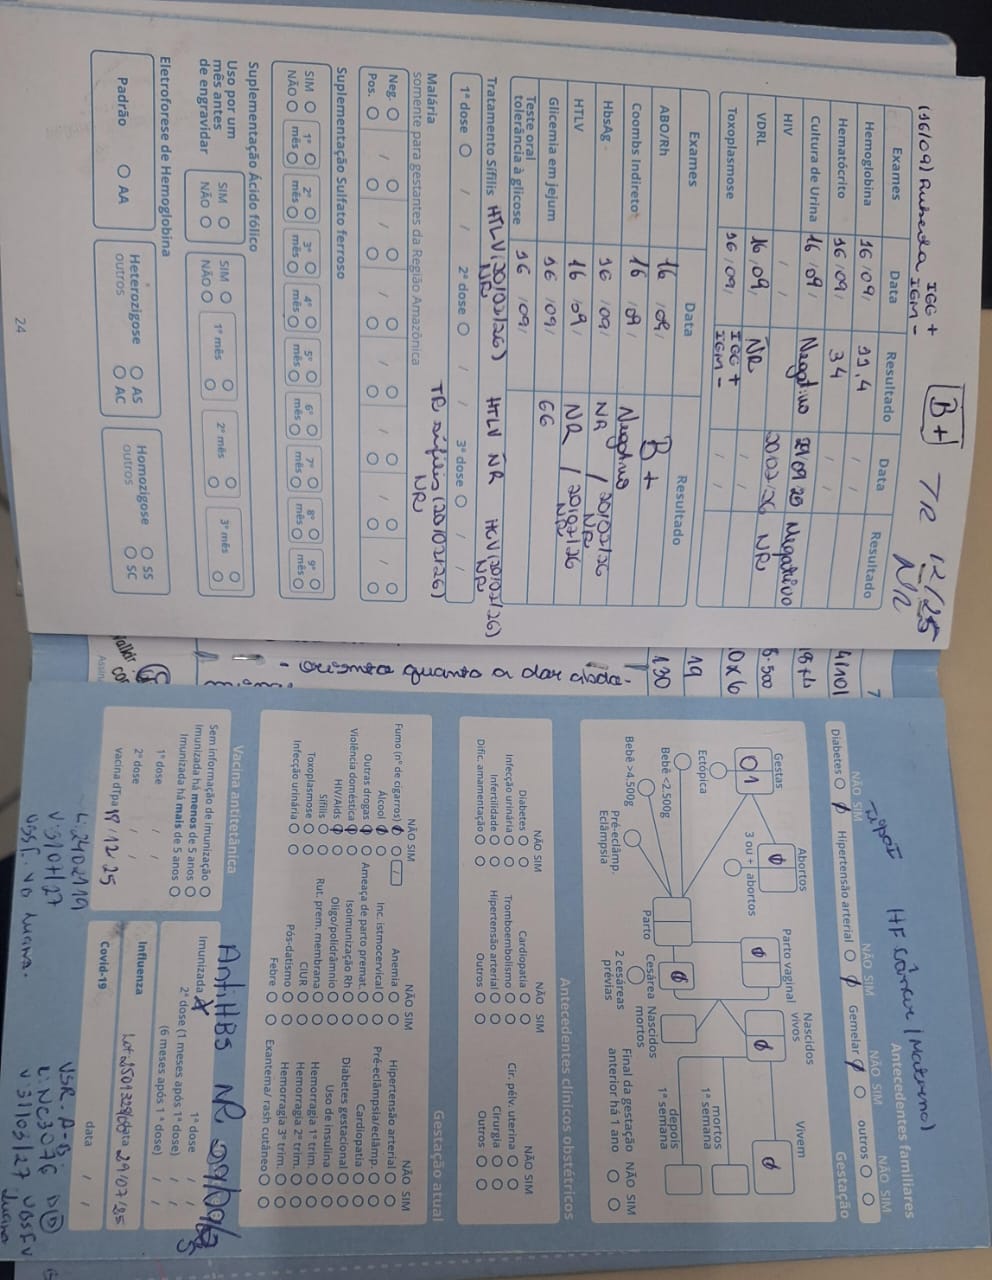 (16/09) Pulseda IGG +
IGM -
B+
TR 12/25
NR
Exames Data Resultado Data Resultado
Hemoglobina 16/09/ 11,4 / /
Hematócrito 16/09/ 34 / /
Cultura de Urina 16/09/ Negativo 29/09/25 Negativo
HIV / / 20/02/26 NR
VDRL 16/09/ NR / /
Toxoplasmose 16/09/ IGG + / /
IGM -
Exames Data Resultado
ABO/Rh 16/09/ B+
Coombs Indireto 16/09/ Negativo
HbsAg 16/09/ NR / 20/02/26
NR
HTLV 16/09/ NR / 20/02/26
NR
Glicemia em jejum 16/09/ 66
Teste oral
tolerância à glicose 16/09/
Tratamento Sífilis HTLV (20/02/26) HTLV NR HCV (20/02/26)
NR NR
1ª dose / / 2ª dose / / 3ª dose / /
TR sífilis (20/02/26)
NR
Malária
somente para gestantes da Região Amazônica
Neg. / / / / / / /
Pos.
Suplementação Sulfato ferroso
SIM 1º 2º 3º 4º 5º 6º 7º 8º 9º
NÃO mês mês mês mês mês mês mês mês mês
Suplementação Ácido fólico
Uso por um
mês antes
de engravidar
SIM
NÃO
SIM
NÃO
1º mês 2º mês 3º mês
Eletroforese de Hemoglobina
Padrão AA
Heterozigose AS
outros AC
Homozigose SS
outros SC
24
7
130 19 0x6
- orienta quanto a dor
Antecedentes familiares
HF câncer (Materno)
NÃO SIM NÃO SIM NÃO SIM NÃO SIM
Diabetes Hipertensão arterial Gemelar outros
Gestação
Gestas 01
Abortos
3 ou + abortos
Parto vaginal
Nascidos
vivos
Vivem
Ectópica
Bebê <2.500g
Bebê >4.500g
Pré-eclâmp.
Eclâmpsia
Parto
Cesárea
2 cesáreas
prévias
Nascidos
mortos
mortos
1ª semana
depois
1ª semana
Final da gestação NÃO SIM
anterior há 1 ano
Antecedentes clínicos obstétricos
NÃO SIM NÃO SIM NÃO SIM
Diabetes Cardiopatia Cir. pélv. uterina
Infecção urinária Tromboembolismo Cirurgia
Infertilidade Hipertensão arterial Outros
Dific. amamentação Outros
Gestação atual
NÃO SIM NÃO SIM NÃO SIM
Fumo (nº de cigarros) Anemia Hipertensão arterial
Álcool Inc. istmocervical Pré-eclâmpsia/eclâmp.
Outras drogas Ameaça de parto premat. Cardiopatia
Violência doméstica Isoimunização Rh Diabetes gestacional
HIV/Aids Oligo/polidrâmnio Uso de insulina
Sífilis Rut. prem. membrana Hemorragia 1º trim.
Toxoplasmose CIUR Hemorragia 2º trim.
Infecção urinária Pós-datismo Hemorragia 3º trim.
Febre Exantema/ rash cutâneo
Vacina antitetânica
AntiHBS NR
Sem informação de imunização
Imunizada há menos de 5 anos
Imunizada há mais de 5 anos
1ª dose / /
2ª dose / /
vacina dTpa 18/12/25
Imunizada 1ª dose / /
2ª dose (1 meses após 1ª dose) / /
(6 meses após 1ª dose) / /
Influenza
data 29/07/25
Covid-19
data / /
V:31/07/27
VSR. A-B
L: NC3076
V:31/03/27 UBSF.V